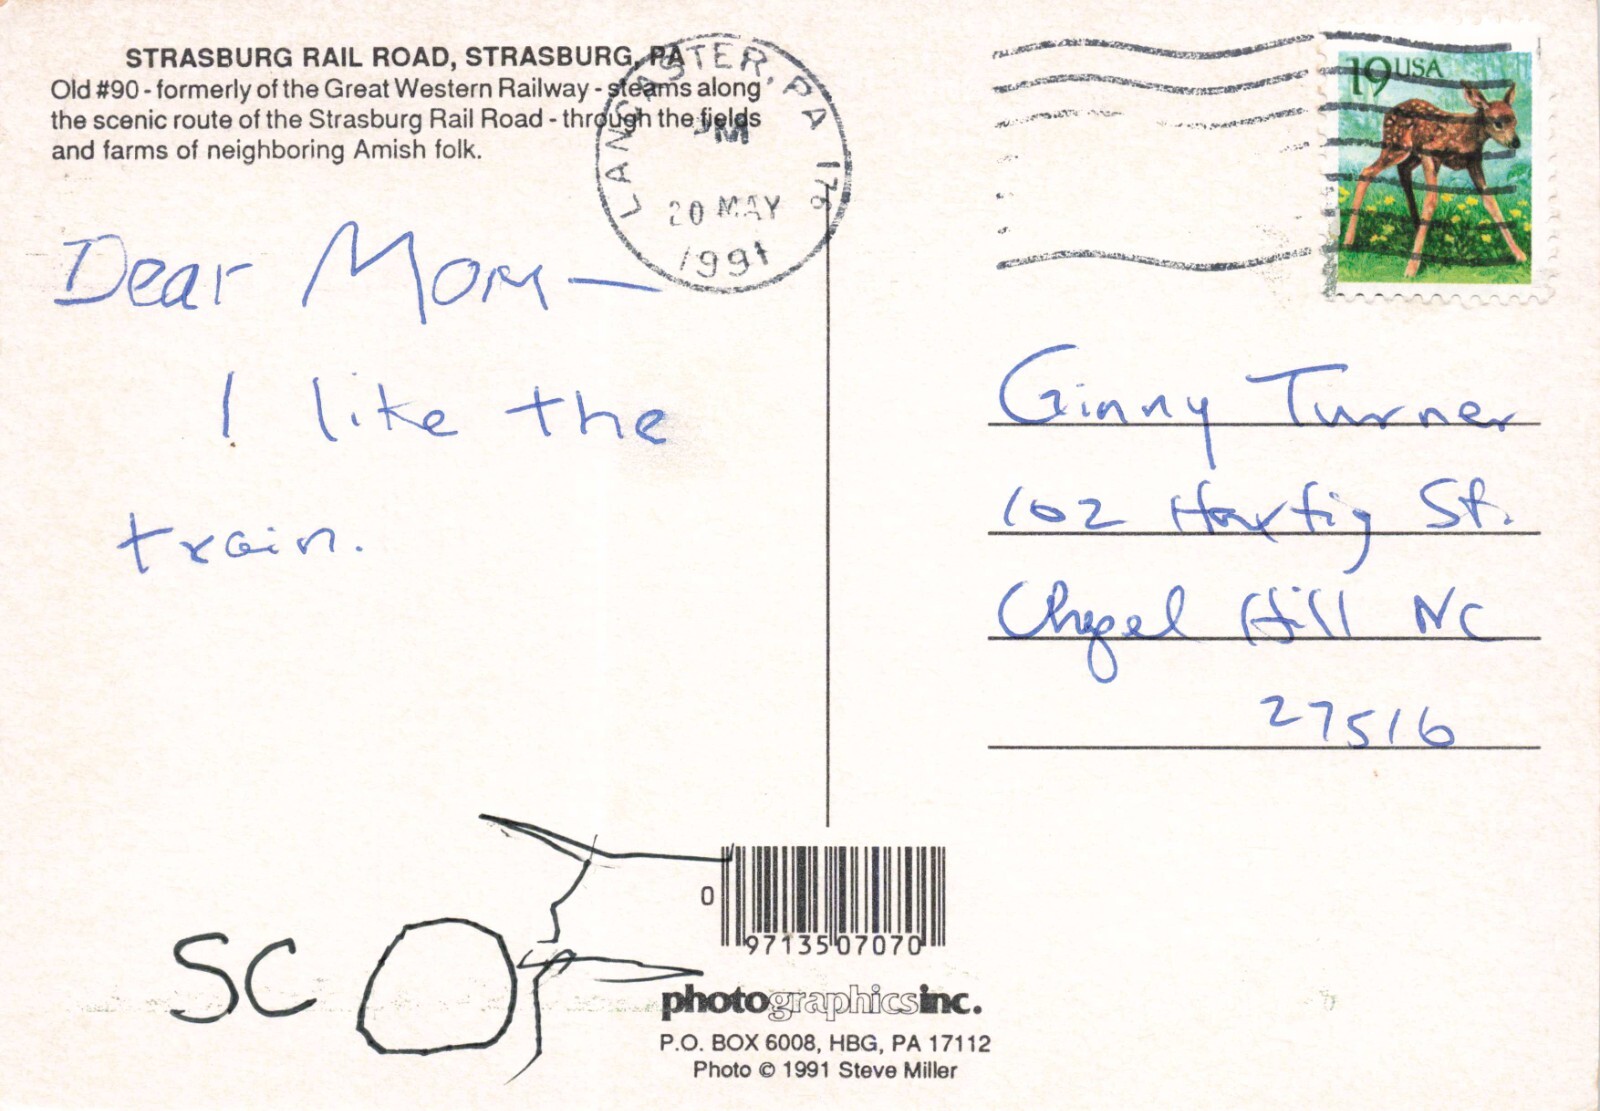 STRASBURG RAIL ROAD, STRASBURG, PA
Old #90 - formerly of the Great Western Railway - steams along
the scenic route of the Strasburg Rail Road - through the fields
and farms of neighboring Amish folk.
LANCASTER, PA 176
PM
20 MAY
1991
19 USA
Dear Mom —
I like the
train.
Ginny Turner
102 Hartig St.
Chapel Hill NC
27516
SC
0 97135 07070
photographicsinc.
P.O. BOX 6008, HBG, PA 17112
Photo © 1991 Steve Miller